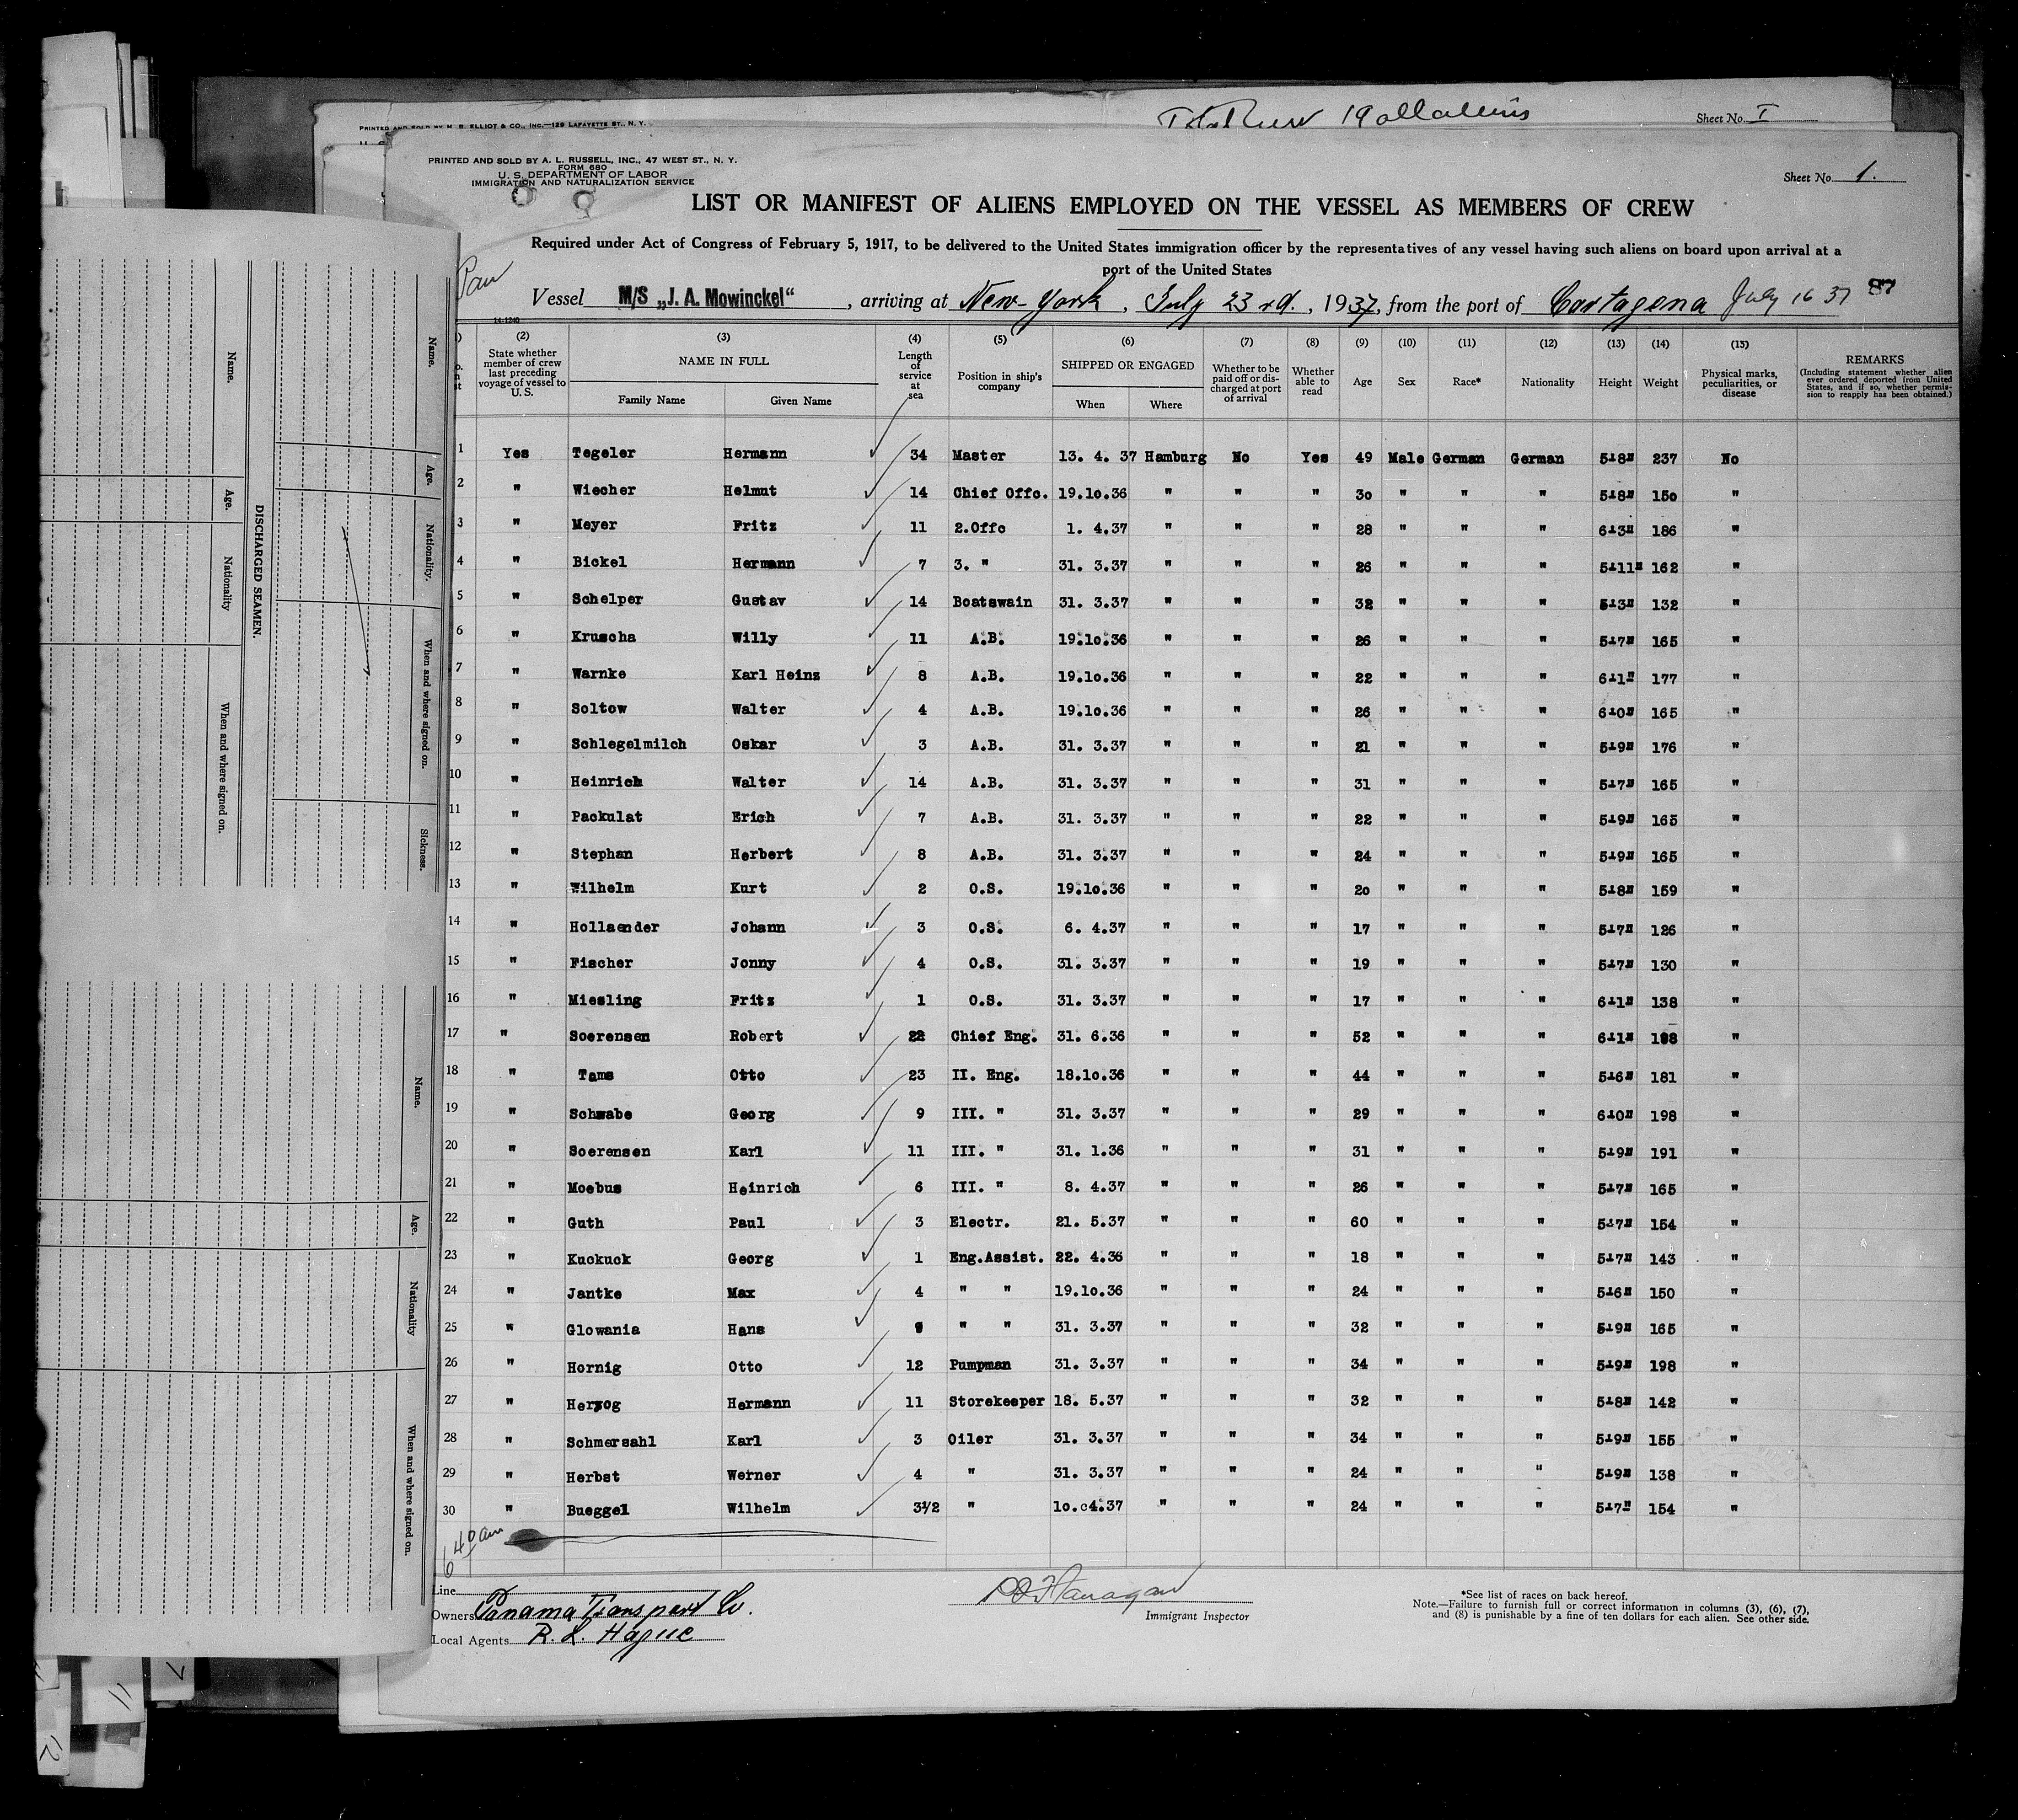 PRINTED AND SOLD BY H. S. ELLIOT & CO., INC.—129 LAFAYETTE ST., N. Y.
Sheet No. I
PRINTED AND SOLD BY A. L. RUSSELL, INC., 47 WEST ST., N. Y.
FORM 680
U. S. DEPARTMENT OF LABOR
IMMIGRATION AND NATURALIZATION SERVICE
Sheet No. 1.
LIST OR MANIFEST OF ALIENS EMPLOYED ON THE VESSEL AS MEMBERS OF CREW
Required under Act of Congress of February 5, 1917, to be delivered to the United States immigration officer by the representatives of any vessel having such aliens on board upon arrival at a
port of the United States
Pan
Vessel M/S „J. A. Mowinckel“, arriving at New-York, July 23rd., 1937, from the port of Cartagena July 16 37 87
14-1240
(2) (3) (4) (5) (6) (7) (8) (9) (10) (11) (12) (13) (14) (15)
State whether member of crew last preceding voyage of vessel to U. S.
NAME IN FULL
Family Name Given Name
Length of service at sea
Position in ship's company
SHIPPED OR ENGAGED
When Where
Whether to be paid off or discharged at port of arrival
Whether able to read
Age Sex Race* Nationality Height Weight
Physical marks, peculiarities, or disease
REMARKS
(Including statement whether alien ever ordered deported from United States, and if so, whether permission to reapply has been obtained.)
1 Yes Tegeler Hermann 34 Master 13. 4. 37 Hamburg No Yes 49 Male German German 5-8" 237 No
2 " Wiecher Helmut 14 Chief Offc. 19.10.36 " " " 30 " " " 5-8" 150 "
3 " Meyer Fritz 11 2.Offc 1. 4.37 " " " 28 " " " 6-3" 186 "
4 " Bickel Hermann 7 3. " 31. 3.37 " " " 26 " " " 5-11" 162 "
5 " Schelper Gustav 14 Boatswain 31. 3.37 " " " 32 " " " 5-3" 132 "
6 " Kruscha Willy 11 A.B. 19.10.36 " " " 26 " " " 5-7" 165 "
7 " Warnke Karl Heinz 8 A.B. 19.10.36 " " " 22 " " " 6-1" 177 "
8 " Soltow Walter 4 A.B. 19.10.36 " " " 26 " " " 6-0" 165 "
9 " Schlegelmilch Oskar 3 A.B. 31. 3.37 " " " 21 " " " 5-9" 176 "
10 " Heinrich Walter 14 A.B. 31. 3.37 " " " 31 " " " 5-7" 165 "
11 " Packulat Erich 7 A.B. 31. 3.37 " " " 22 " " " 5-9" 165 "
12 " Stephan Herbert 8 A.B. 31. 3.37 " " " 24 " " " 5-9" 165 "
13 " Wilhelm Kurt 2 O.S. 19.10.36 " " " 20 " " " 5-8" 159 "
14 " Hollaender Johann 3 O.S. 6. 4.37 " " " 17 " " " 5-7" 126 "
15 " Fischer Jonny 4 O.S. 31. 3.37 " " " 19 " " " 5-7" 130 "
16 " Miesling Fritz 1 O.S. 31. 3.37 " " " 17 " " " 6-1" 138 "
17 " Soerensen Robert 22 Chief Eng. 31. 6.36 " " " 52 " " " 6-1" "
18 " Tams Otto 23 II. Eng. 18.10.36 " " " 44 " " " 5-6" 181 "
19 " Schwabe Georg 9 III. " 31. 3.37 " " " 29 " " " 6-0" 198 "
20 " Soerensen Karl 11 III. " 31. 1.36 " " " 31 " " " 5-9" 191 "
21 " Moebus Heinrich 6 III. " 8. 4.37 " " " 26 " " " 5-7" 165 "
22 " Guth Paul 3 Electr. 21. 5.37 " " " 60 " " " 5-7" 154 "
23 " Kuckuck Georg 1 Eng.Assist. 22. 4.36 " " " 18 " " " 5-7" 143 "
24 " Jantke Max 4 " " 19.10.36 " " " 24 " " " 5-6" 150 "
25 " Glowania Hans " " 31. 3.37 " " " 32 " " " 5-9" 165 "
26 " Hornig Otto 12 Pumpman 31. 3.37 " " " 34 " " " 5-9" 198 "
27 " Herzog Hermann 11 Storekeeper 18. 5.37 " " " 32 " " " 5-8" 142 "
28 " Schmersahl Karl 3 Oiler 31. 3.37 " " " 34 " " " 5-9" 155 "
29 " Herbst Werner 4 " 31. 3.37 " " " 24 " " " 5-9" 138 "
30 " Bueggel Wilhelm 3½ " 10.c4.37 " " " 24 " " " 5-7" 154 "
6 40 am
Line
Owners Panama Transport Co.
Local Agents R. L. Hague
Immigrant Inspector
*See list of races on back hereof.
Note.—Failure to furnish full or correct information in columns (3), (6), (7),
and (8) is punishable by a fine of ten dollars for each alien. See other side.
Name.
Age.
Nationality.
When and where signed on.
Sickness.
DISCHARGED SEAMEN.
Name.
Age.
Nationality
When and where signed on.
Name.
Age.
Nationality
When and where signed on.
7
11
12